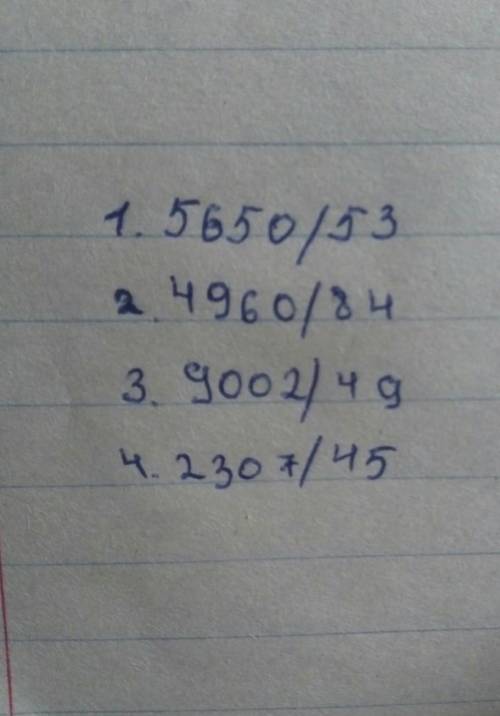 1. 5650/53
2. 4960/84
3. 9002/49
4. 2307/45